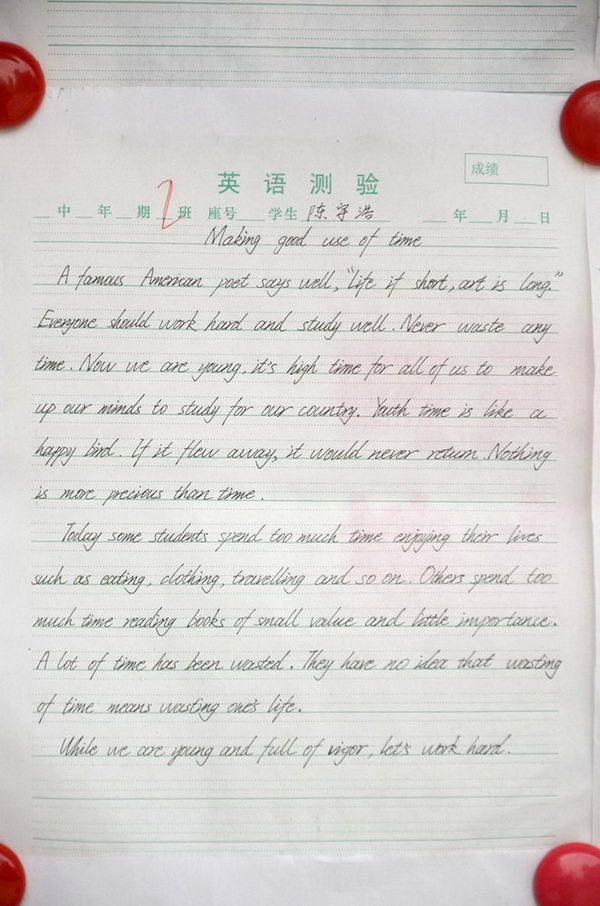 英语测验
成绩
中 年 期 2 班 座号 学生 陈宇浩 年 月 日
Making good use of time
A famous American poet says well, "life if short, art is long."
Everyone should work hard and study well. Never waste any
time. Now we are young, it's high time for all of us to make
up our minds to study for our country. Youth time is like a
happy bird. If it flew away, it would never return. Nothing
is more precious than time.
Today some students spend too much time enjoying their lives
such as eating, clothing, travelling and so on. Others spend too
much time reading books of small value and little importance.
A lot of time has been wasted. They have no idea that wasting
of time means wasting one's life.
While we are young and full of vigor, let's work hard.